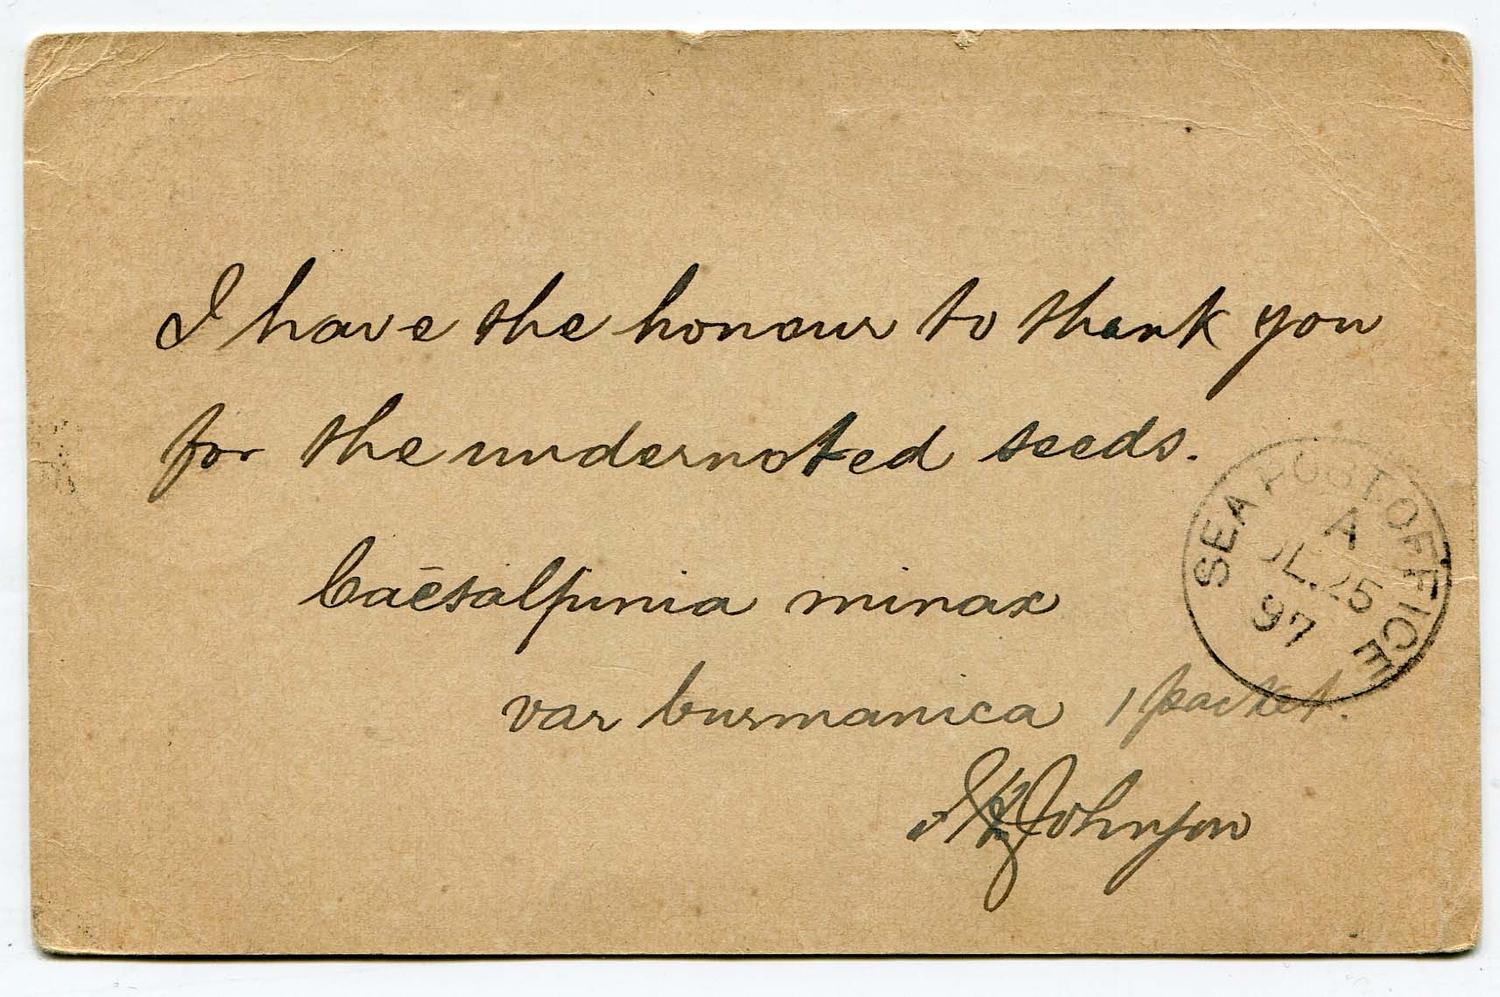 I have the honour to thank you
for the undernoted seeds.
Caēsalpinia minax
var burmanica 1 packet.
Johnson
SEA POST OFFICE
A
25
97